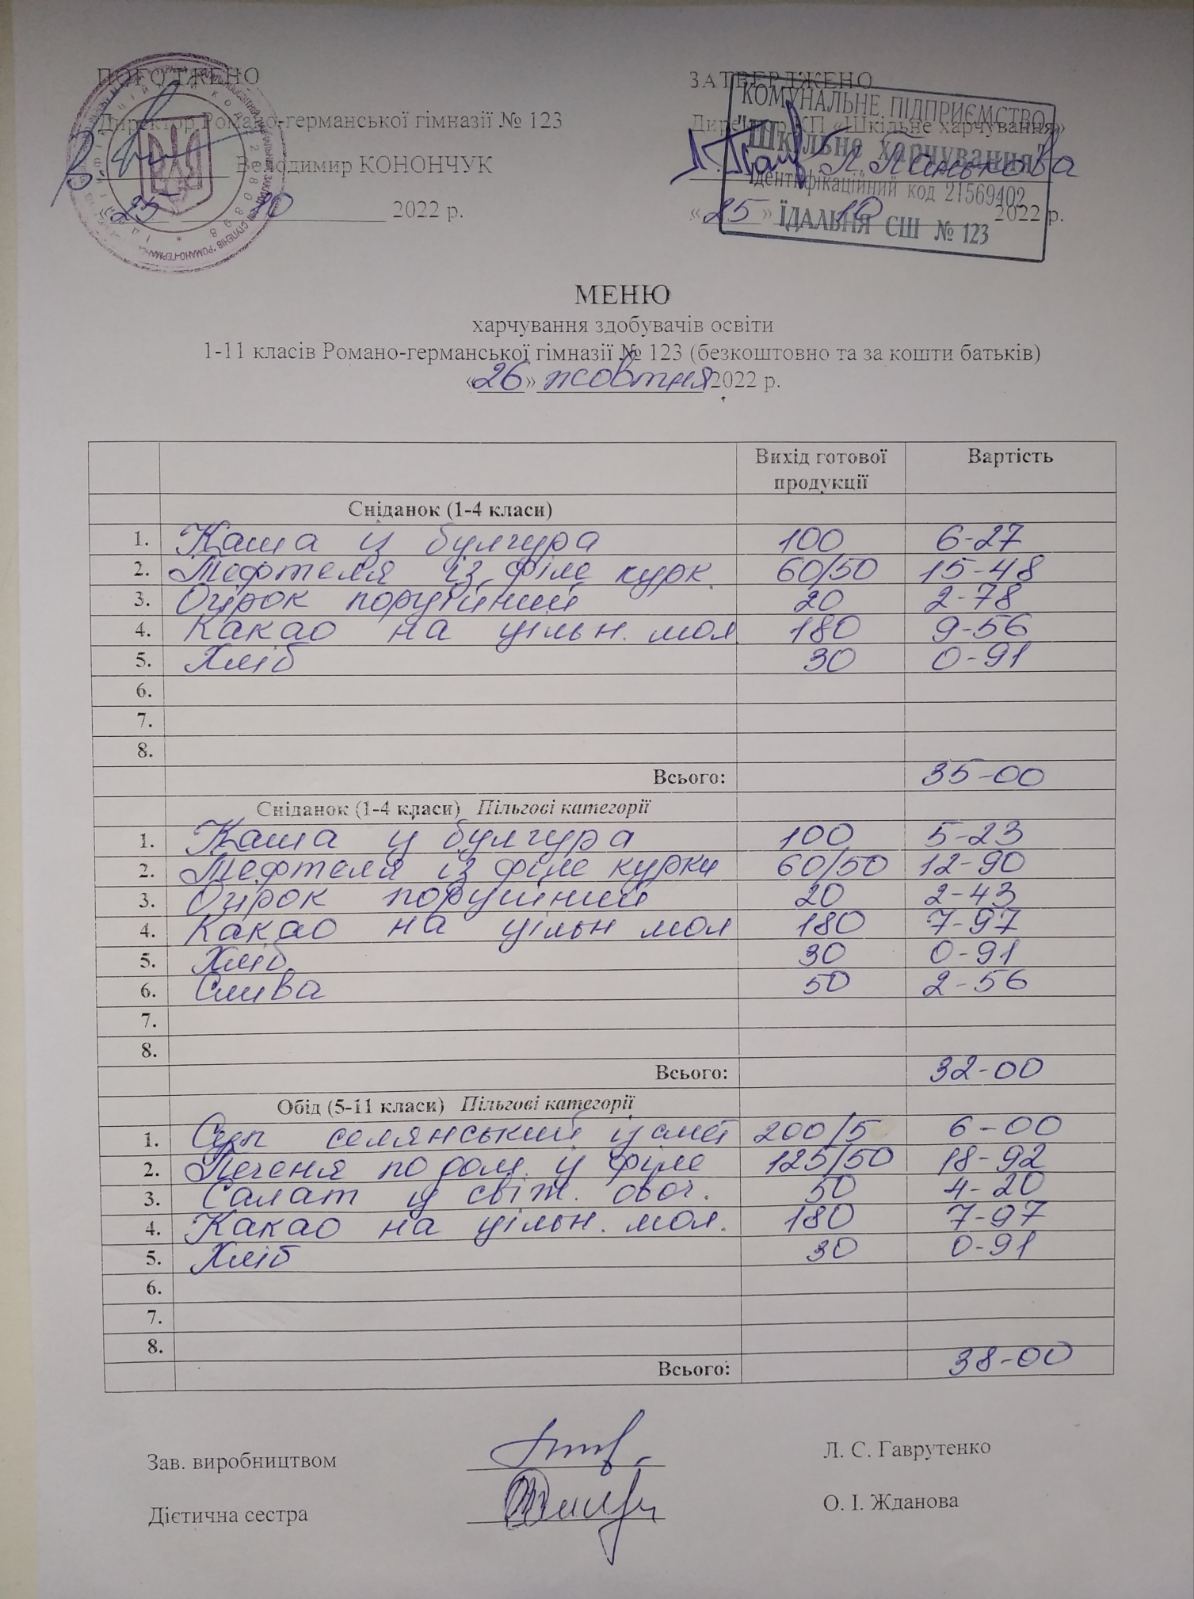 ПОГОДЖЕНО
Директор Романо-германської гімназії № 123
Володимир КОНОНЧУК
25 10 2022 р.
ЗАТВЕРДЖЕНО
Директор КП «Шкільне харчування»
Л. Панькова
«25» 10 2022 р.
КОМУНАЛЬНЕ ПІДПРИЄМСТВО
"Шкільне харчування"
Ідентифікаційний код 21569402
ЇДАЛЬНЯ СШ № 123
МЕНЮ
харчування здобувачів освіти
1-11 класів Романо-германської гімназії № 123 (безкоштовно та за кошти батьків)
«26» жовтня 2022 р.
Вихід готової продукції Вартість
Сніданок (1-4 класи)
1. Каша із булгура 100 6-27
2. Мефтеля із філе курк. 60/50 15-48
3. Огірок порційний 20 2-78
4. Какао на цільн. мол 180 9-56
5. Хліб 30 0-91
6.
7.
8.
Всього: 35-00
Сніданок (1-4 класи) Пільгові категорії
1. Каша із булгура 100 5-23
2. Мефтеля із філе курки 60/50 12-90
3. Огірок порційний 20 2-43
4. Какао на цільн мол 180 7-97
5. Хліб 30 0-91
6. Слива 50 2-56
7.
8.
Всього: 32-00
Обід (5-11 класи) Пільгові категорії
1. Суп селянський із смет 200/5 6-00
2. Печеня по дом. із філе 125/50 18-92
3. Салат із свіж. овоч. 50 4-20
4. Какао на цільн. мол. 180 7-97
5. Хліб 30 0-91
6.
7.
8.
Всього: 38-00
Зав. виробництвом Л. С. Гаврутенко
Дієтична сестра О. І. Жданова